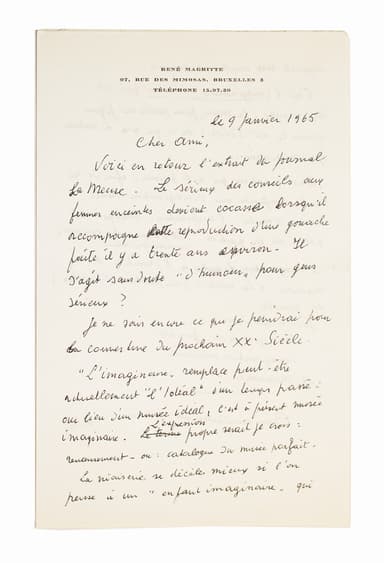 RENÉ MAGRITTE
97, RUE DES MIMOSAS, BRUXELLES 3
TÉLÉPHONE 15.97.30
le 9 Janvier 1965
Cher Ami,
Voici en retour l'extrait du journal
La Meuse. Le sérieux des conseils aux
femmes enceintes devient cocasse lorsqu'il
accompagne cette reproduction d'une gouache
faite il y a trente ans environ. Il
s'agit sans doute "d'humour" pour gens
sérieux ?
Je ne sais encore ce que je peindrai pour
la couverture du prochain XXe Siècle.
"L'imaginaire" remplace peut-être
actuellement "l'Idéal" d'un temps passé :
au lieu d'un musée idéal, c'est à présent musée
l'expression
imaginaire. Le terme propre serait je crois :
recensement - ou : catalogue du musée parfait.
La niaiserie se décèle mieux si l'on
pense à un "enfant imaginaire" qui